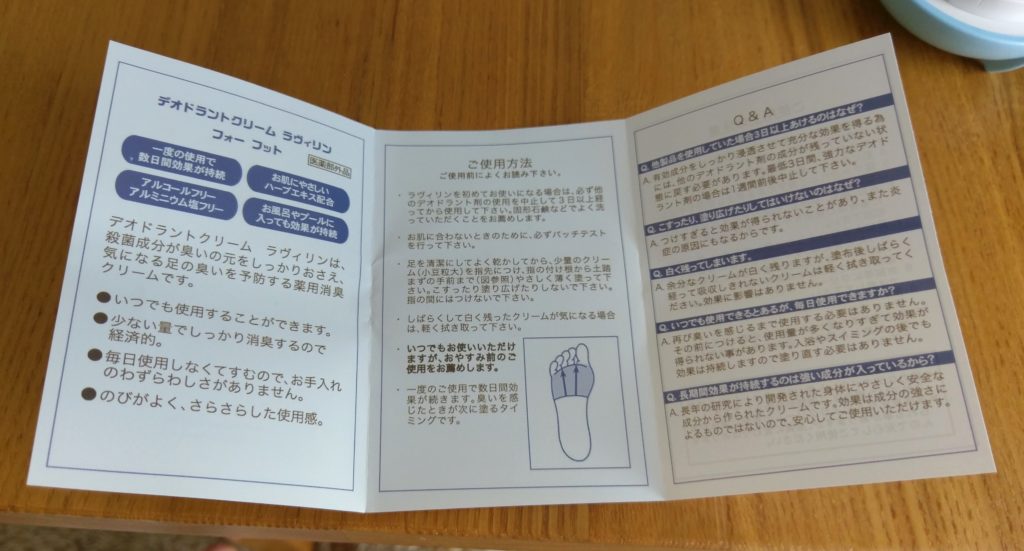 デオドラントクリーム ラヴィリン
フォー フット
医薬部外品
一度の使用で
数日間効果が持続
お肌にやさしい
ハーブエキス配合
アルコールフリー
アルミニウム塩フリー
お風呂やプールに
入っても効果が持続
デオドラントクリーム ラヴィリンは、
殺菌成分が臭いの元をしっかりおさえ、
気になる足の臭いを予防する薬用消臭
クリームです。
●いつでも使用することができます。
●少ない量でしっかり消臭するので
経済的。
●毎日使用しなくてすむので、お手入れ
のわずらわしさがありません。
●のびがよく、さらさらした使用感。
ご使用方法
ご使用前によくお読み下さい。
・ラヴィリンを初めてお使いになる場合は、必ず他
のデオドラント剤の使用を中止して3日以上経
ってから使用して下さい。固形石鹸などでよく洗
っていただくことをお薦めします。
・お肌に合わないときのために、必ずパッチテスト
を行って下さい。
・足を清潔にしてよく乾かしてから、少量のクリー
ム(小豆粒大)を指先につけ、指の付け根から土踏
まずの手前まで(図参照)やさしく薄く塗って下
さい。こすったり塗り広げたりしないで下さい。
指の間にはつけないで下さい。
・しばらくして白く残ったクリームが気になる場合
は、軽く拭き取って下さい。
・いつでもお使いいただけ
ますが、おやすみ前のご
使用をお薦めします。
・一度のご使用で数日間効
果が続きます。臭いを感
じたときが次に塗るタイ
ミングです。
Q&A
Q. 他製品を使用していた場合3日以上あけるのはなぜ?
A. 有効成分をしっかり浸透させて充分な効果を得る為
には、他のデオドラント剤の成分が残っていない状
態に戻す必要があります。最低3日間、強力なデオド
ラント剤の場合は1週間前後中止して下さい。
Q. こすったり、塗り広げたりしてはいけないのはなぜ?
A. つけすぎると効果が得られないことがあり、また炎
症の原因にもなるからです。
Q. 白く残ってしまいます。
A. 余分なクリームが白く残りますが、塗布後しばらく
経って吸収しきれないクリームは軽く拭き取ってく
ださい。効果に影響はありません。
Q. いつでも使用できるとあるが、毎日使用できますか?
A. 再び臭いを感じるまで使用する必要はありません。
その前につけると、使用量が多くなりすぎて効果が
得られない事があります。入浴やスイミングの後でも
効果は持続しますので塗り直す必要はありません。
Q. 長期間効果が持続するのは強い成分が入っているから?
A. 長年の研究により開発された身体にやさしく安全な
成分から作られたクリームです。効果は成分の強さに
よるものではないので、安心してご使用いただけます。